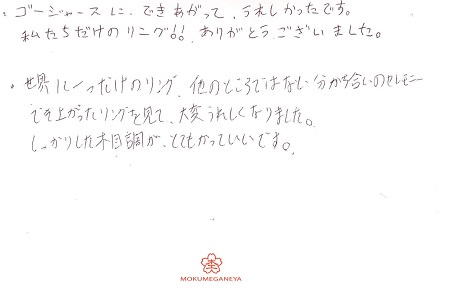 ・ゴージャースに、できあがって、うれしかったです。
私たちだけのリング!!ありがとうございました。
・世界に一つだけのリング、他のところではない分かち合いのセレモニー
でき上がったリングを見て、大変うれしくなりました。
しっかりした木目調が、とてもかっていいです。
MOKUMEGANEYA